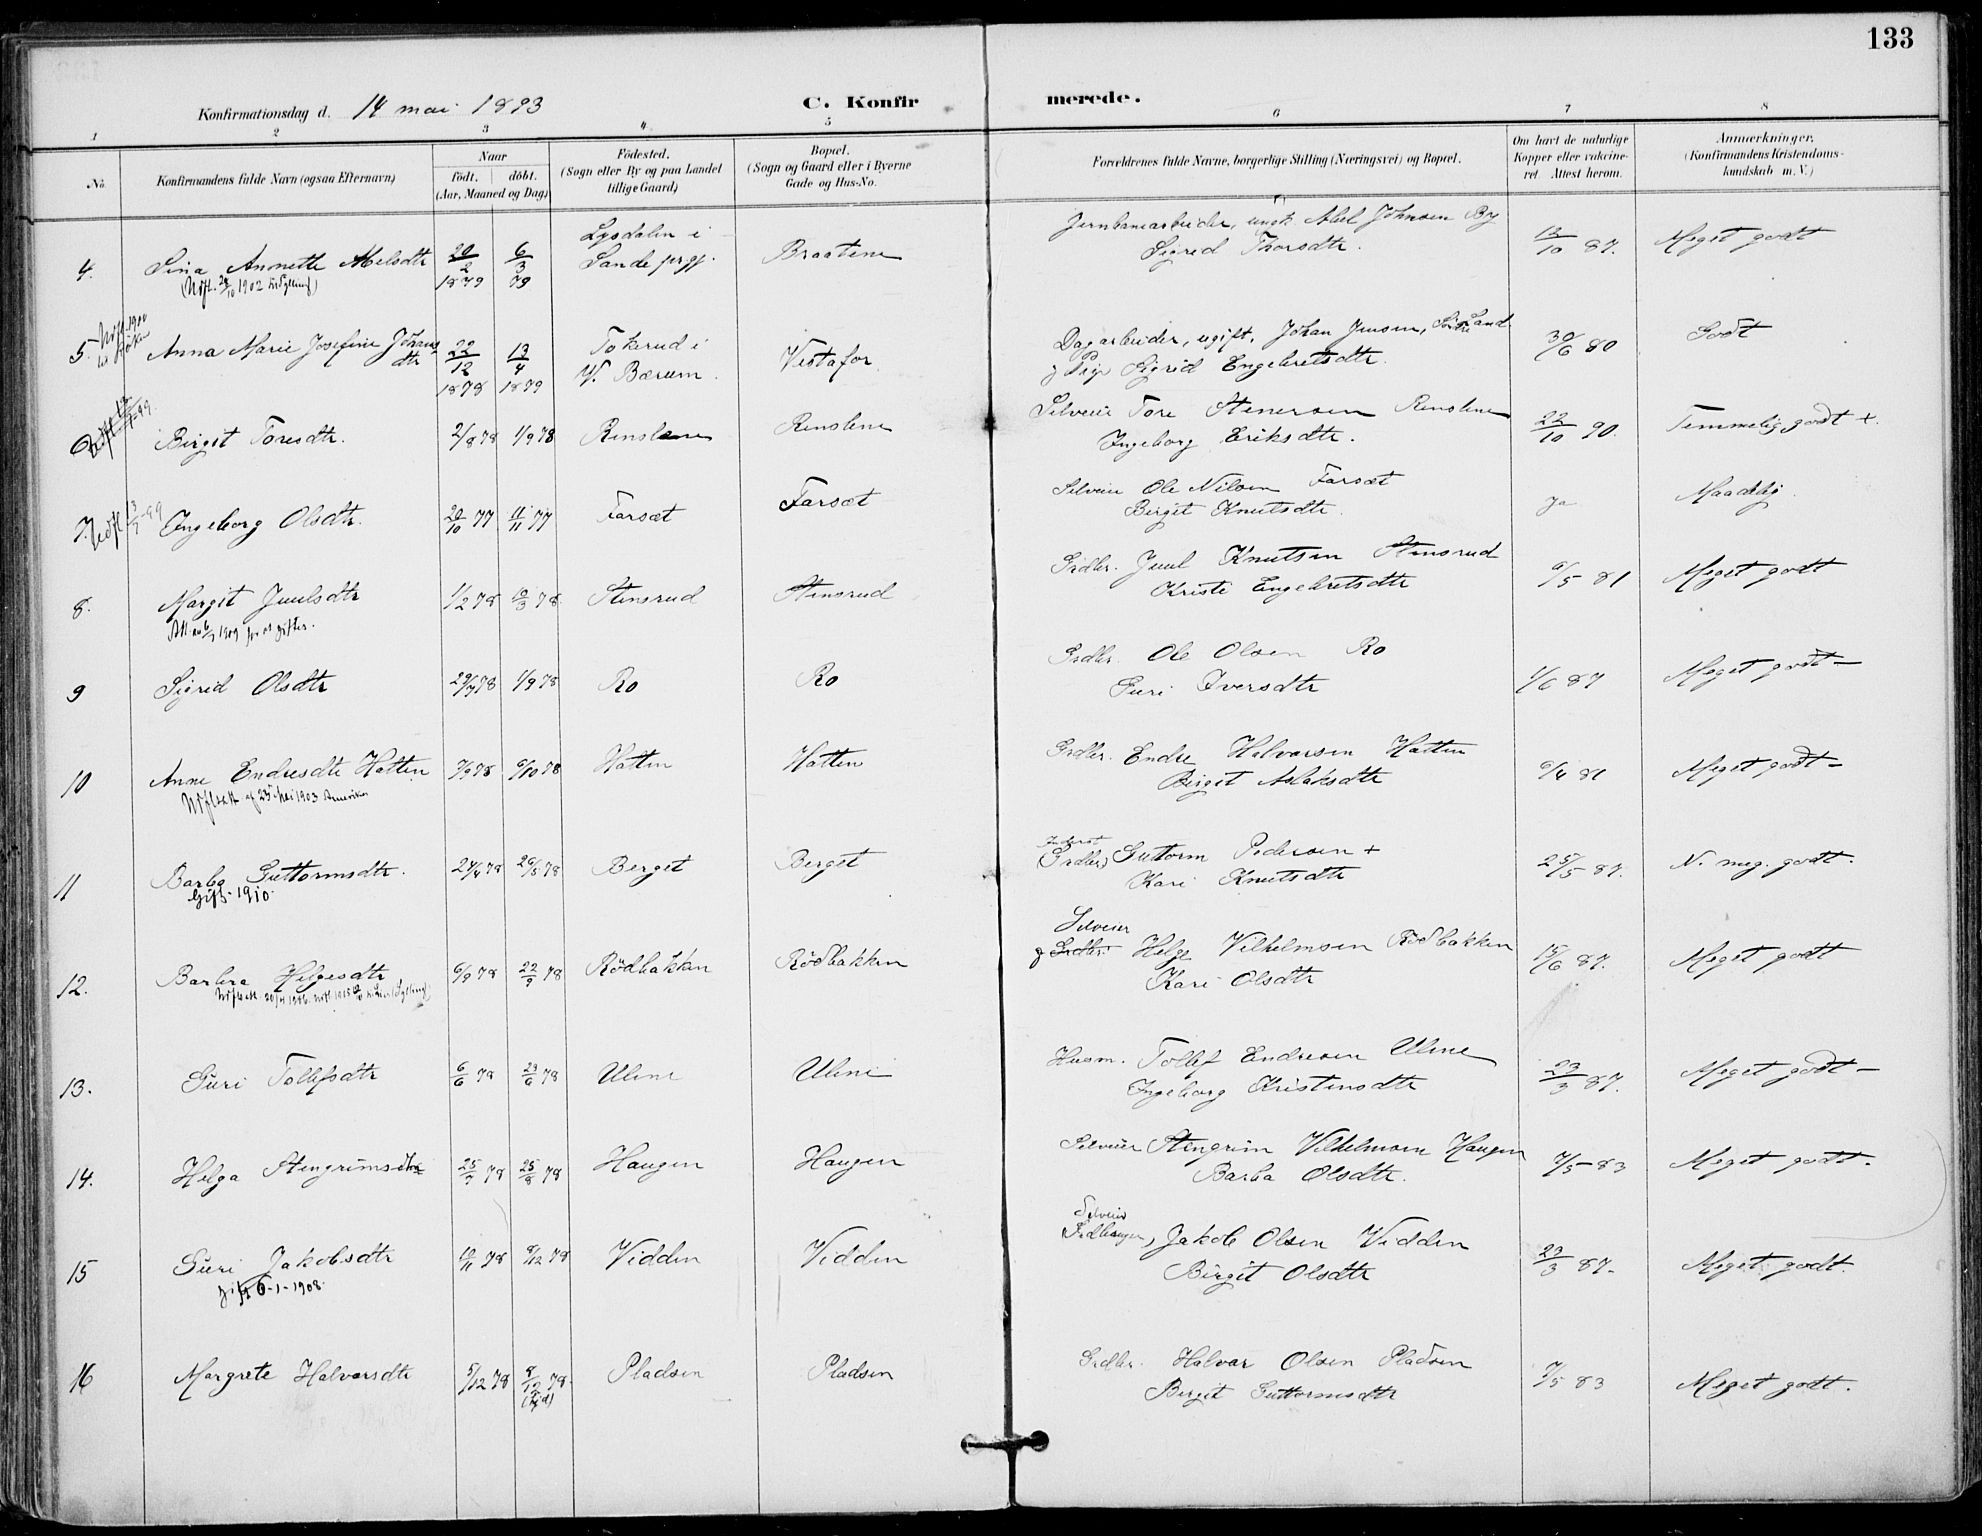 133
Konfirmationsdag d. 14 mai 1893
C. Konfirmerede.
1 2 3 4 5 6 7 8
No.
Konfirmandens fulde Navn (ogsaa Efternavn)
Naar
födt. döbt.
(Aar, Maaned og Dag)
Födested.
(Sogn eller By og paa Landet
tillige Gaard)
Bopæl.
(Sogn og Gaard eller i Byerne
Gade og Hus-No.
Forældrenes fulde Navne, borgerlige Stilling (Næringsvei) og Bopæl.
Om havt de naturlige
Kopper eller vaksine-
ret. Attest herom.
Anmærkninger,
(Konfirmandens Kristendoms-
kundskab m. V.)
4. Sina Annette 20/2 1879 6/3 79 Lysdalen i Sande prgj. Braatene
Jernbanearbeider, Abel Johnsen By
Sigrid Thorsdtr. 13/10 87. Meget godt
5. Anna Marie Josefine Johans dtr 22/12 1878 13/4 1879 Tokerud i V. Bærum. Vestafor
Dagarbeider, ugift, Johan Jensen,
Pige Sigrid Engebretsdtr. 30/6 80 Godt
6 Birgit Toresdtr. 2/8 78 1/9 78 Renslene Renslene
Selveier Tore Stenersen Renslene
Ingeborg Eriksdtr. 22/10 90. Temmelig godt +.
7. Ingeborg Olsdtr. 20/10 77 11/11 77 Farsæt Farsæt
Selveier Ole Nilsen Farsæt
Birgit Knutsdtr. Ja Maadelig.
8. Margit Juulsdtr 1/2 78 10/3 78 Stensrud Stensrud
Grdbr. Juul Knutsen Stensrud
Kristi Engebretsdtr 6/5 81 Meget godt
9 Sigrid Olsdtr 29/7 78 1/9 78 Ro Ro
Grdbr. Ole Olsen Ro
Guri Iversdtr 1/6 87 Meget godt –
10 Anne Endresdtr Hatten 7/9 78 6/10 78 Hatten Hatten
25 Mai 1903 Amerika
Grdbr. Endre Halvorsen Hatten
Birgit Aslaksdtr 6/4 81 Meget godt –
11 Barbo Guttormsdtr. 24/4 78 26/5 78 Berget Berget
Gift 1910.
(Grdbr) Guttorm Pedersen +
Kari Knutsdtr 25/5 87. N. meg. godt.
12. Barbra Helgesdtr 6/9 78 22/9 78 Rödbakken Rödbakken
Selveier
Grdbr. Helge Vilhelmsen Rödbakken
Kari Olsdtr 15/6 87. Meget godt
13. Guri Tollefsdtr 6/6 78 23/6 78 Uleni Uleni
Husm. Tollef Endresen Ulene
Ingeborg Kristensdtr 23/3 87. Meget godt –
14. Helga Stengrimsdtr 25/7 78 25/8 78 Haugen Haugen
Selveier Stengrim Vilhelmsen Haugen
Barba Olsdtr. 7/5 – 83 Meget godt.
15 Guri Jakobsdtr 10/11 78 8/12 78 Vidden Vidden
gift 6-1-1908.
Selveier
Jakob Olsen Vidden
Birgit Olsdtr 29/3 87. Meget godt.
16 Margrete Halvorsdtr 5/12 78 8/12 78. Pladsen Pladsen
Grdbr. Halvor Olsen Pladsen
Birgit Guttormsdtr 7/5 83 Meget godt.